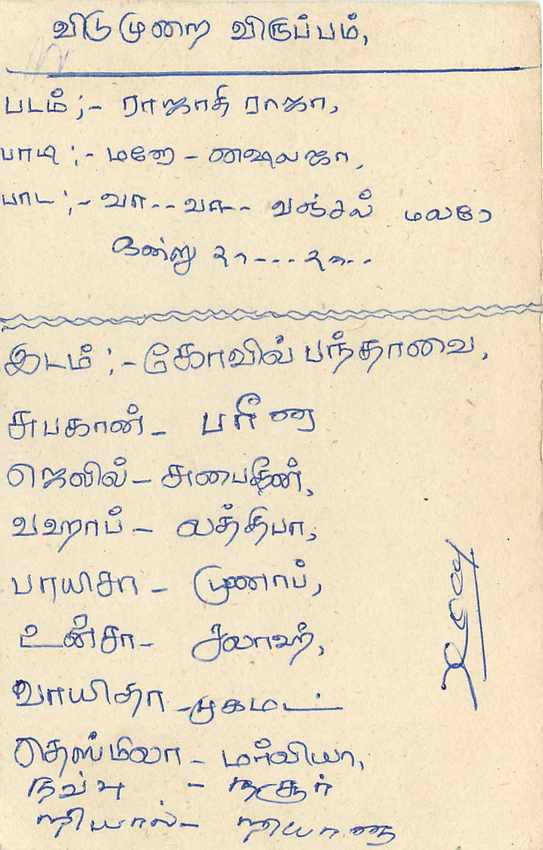 விடுமுறை விருப்பம்,
படம் ;- ராஜாதி ராஜா,
பாடி ;- மனோ - ஷைலஜா,
பாட ;- வா-- வா-- வஞ்சல் மலரே
ஒன்று தா---தா--
இடம் ;- கோவில் பந்தாவை,
சுபகான் - பரீனா
ஜெவில் - சுபைதீன்,
வஹாப் - லத்தீபா,
பாயிசா - முனாப்,
உன்சா - சலாஹ்,
வாயிதா - முகமட்
தெஸ்மிலா - மர்வியா,
நவ்பு - நசூர்
ரியால் - ரியானா